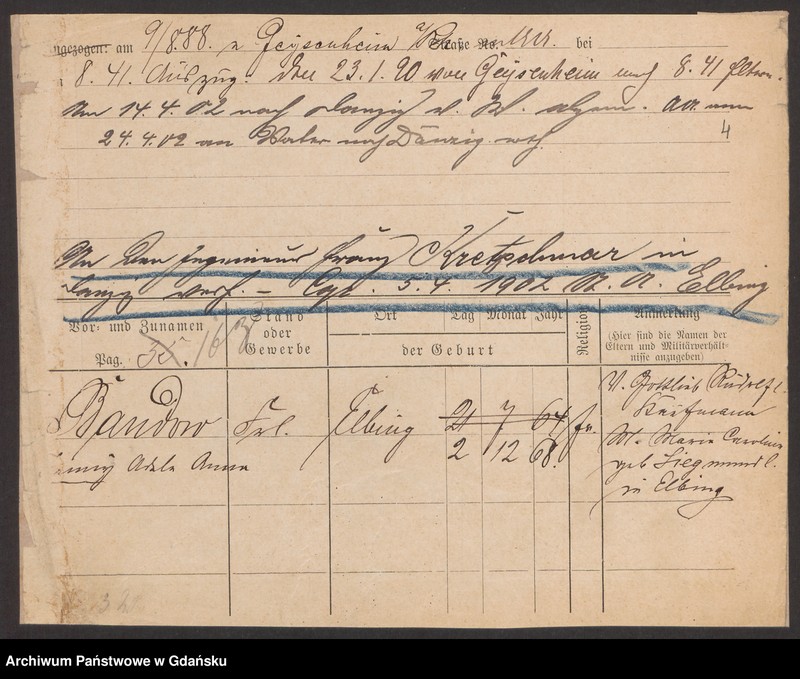 ngezogen: am 9/8.88. n Geysenheim a/Rh. Straße No. bei
8. 41. Auszug. den 23.1.90 von Geysenheim nach 8. 41 Eltern.
Am 14.4.02 nach Danzig v. W. abgem.
4
24.4.02 an Vater nach Danzig
An den Ingenieur Franz Kretschmar in
Danzig verh. - Cge. 5.4. 1902 St. A. Elbing
Vor- und Zunamen
Pag. 35. 163
Stand oder Gewerbe
Ort Tag Monat Jahr
der Geburt
Religion
Anmerkung
(Hier sind die Namen der
Eltern und Militärverhält-
nisse anzugeben)
Bandow Frl. Elbing 21 7 64
2 12 68.
Adele Anna
V. Gottlieb Rudolf
Kaufmann
M. Marie Caroline
geb Siegmund
in Elbing
Archiwum Państwowe w Gdańsku